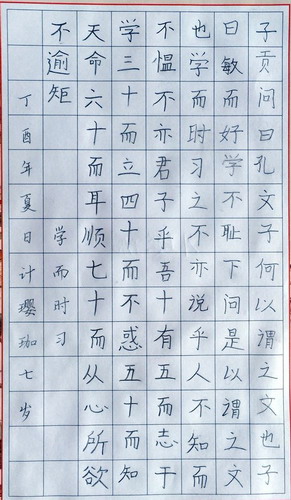 子贡问曰孔文子何以谓之文也子
曰敏而好学不耻下问是以谓之文
也学而时习之不亦说乎人不知而
不愠不亦君子乎吾十有五而志于
学三十而立四十而不惑五十而知
天命六十而耳顺七十而从心所欲
不逾矩
学而时习
丁酉年夏日计璎珈七岁